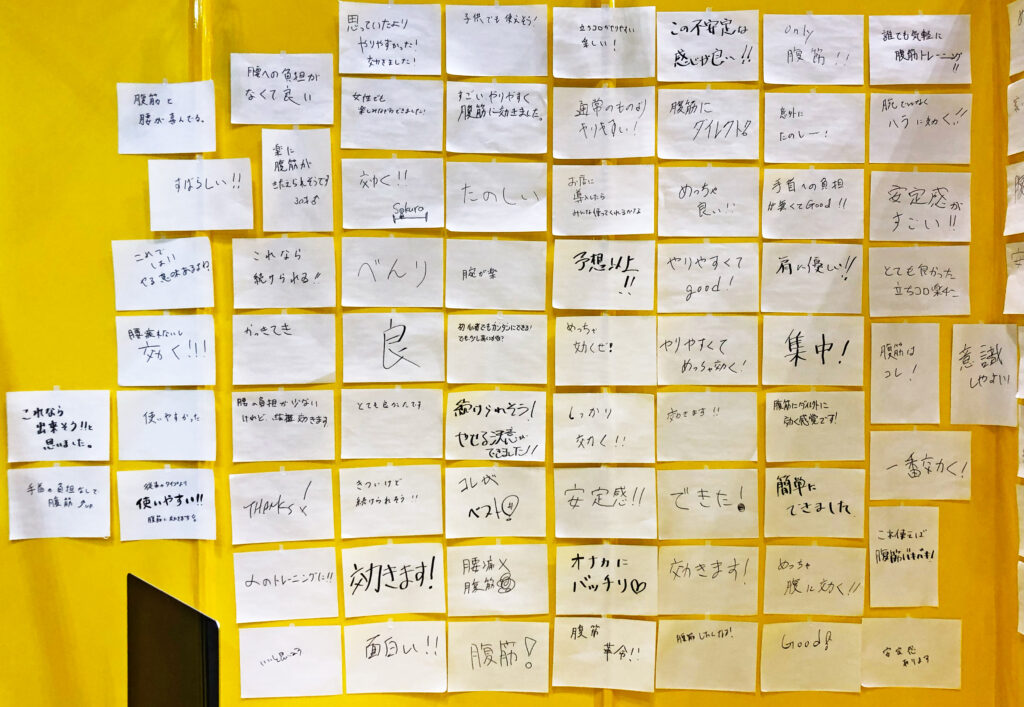 思っていたより
やりやすかった!
効きました!
子供でも使えそう!
立ちコロがやりやすい
楽しい!
この不安定な
感じが良い!!
only
腹筋!!
誰でも気軽に
腹筋トレーニング!!
腰への負担が
なくて良い
腹筋と
腰が喜んでる。
女性でも
楽しみながらできました!
すごいやりやすく
腹筋に効きました。
通常のものより
やりやすい!
腹筋に
ダイレクト!
意外に
たのしー!
ハラに効く!!
楽に
腹筋が
きたえられそうです
すばらしい!!
効く!!
Sokuro
たのしい
お店に
導入したら
みんな使ってくれるかなぁ
めっちゃ
良い!!
手首への負担
が無くてGood!!
安定感が
すごい!!
これで
やる意味あるよね?
これなら
続けられる!!
べんり
腕が楽
予想以上
!!
やりやすくて
good!
肩に優しい!!
とても良かった
立ちコロ楽な
腰痛まないし
効く!!!
かっきてき
良
初心者でもカンタンにできる!
めっちゃ
効くぜ!
やりやすくて
めっちゃ効く!
集中!
腹筋は
コレ!
意識
しやすい!
これなら
出来そう!!と
思いました。
使いやすかった
腰の負担が少ない
けれど、効きます
とても良かったです
続けられそう!
やせる決意が
できました!!
しっかり
効く!!
効きます!!
腹筋にダイレクトに
効く感覚です!
一番効く!
手首の負担なしで
腹筋
従来のタイプより
使いやすい!!
THANKS!
きついけど
続けられそう!!
コレが
ベスト!
安定感!!
できた!
簡単に
できました
これ使えば
腹筋バキバキ!
人のトレーニングに!!
効きます!
腰痛×
腹筋◎
オナカに
バッチリ♡
効きます!
めっちゃ
腹に効く!!
面白い!!
腹筋!
腹筋
革命!!
Good!
安定感
あります